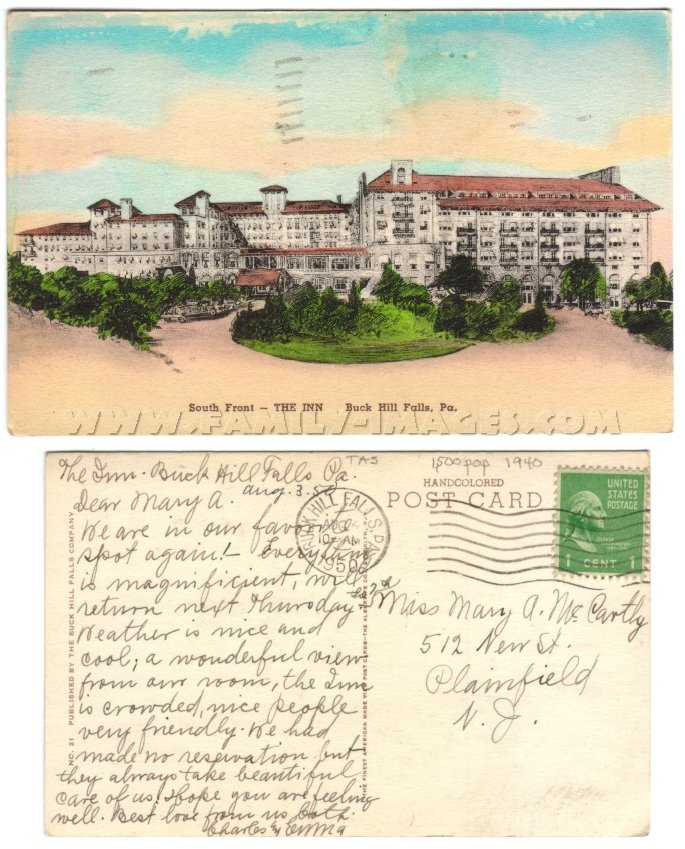 South Front — THE INN Buck Hill Falls, Pa.
WWW.FAMILY-IMAGES.COM
TAS 1500 pop 1940
HANDCOLORED
POST CARD
UNITED
STATES
POSTAGE
1 CENT 1
BUCK HILL FALLS
AUG 4
10 AM
1950
The Inn. Buck Hill Falls Pa.
Aug. 3. 50
Dear Mary A.
We are in our favorite
spot again! Everything
is magnificient, will
return next Thursday
Weather is nice and
cool; a wonderful view
from our room, the Inn
is crowded, nice people
very friendly. We had
made no reservation but
they always take beautiful
care of us. Hope you are feeling
well. Best love from us both.
Charles & Emma
Miss Mary A. McCartly
512 New St.
Plainfield
N. J.
NO. 21 PUBLISHED BY THE BUCK HILL FALLS COMPANY
THE FINEST AMERICAN MADE VIEW POST CARDS—THE ALBERTYPE CO.